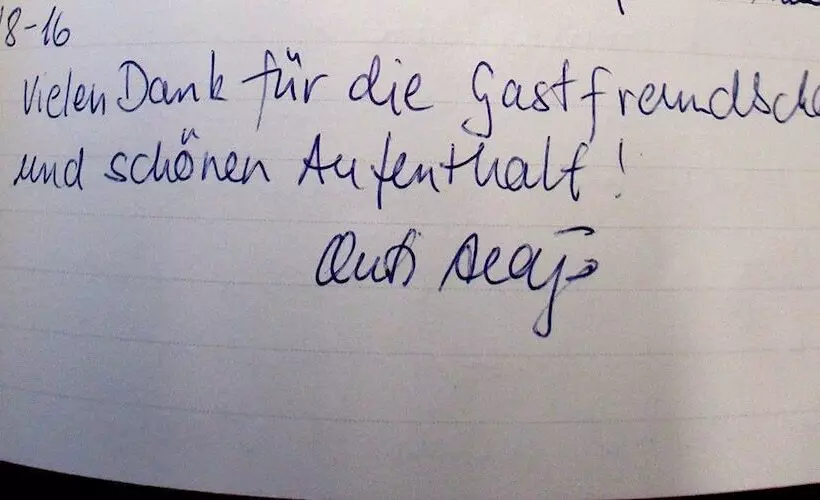 8-16
Vielen Dank für die Gastfreundscha
und schönen Aufenthalt!